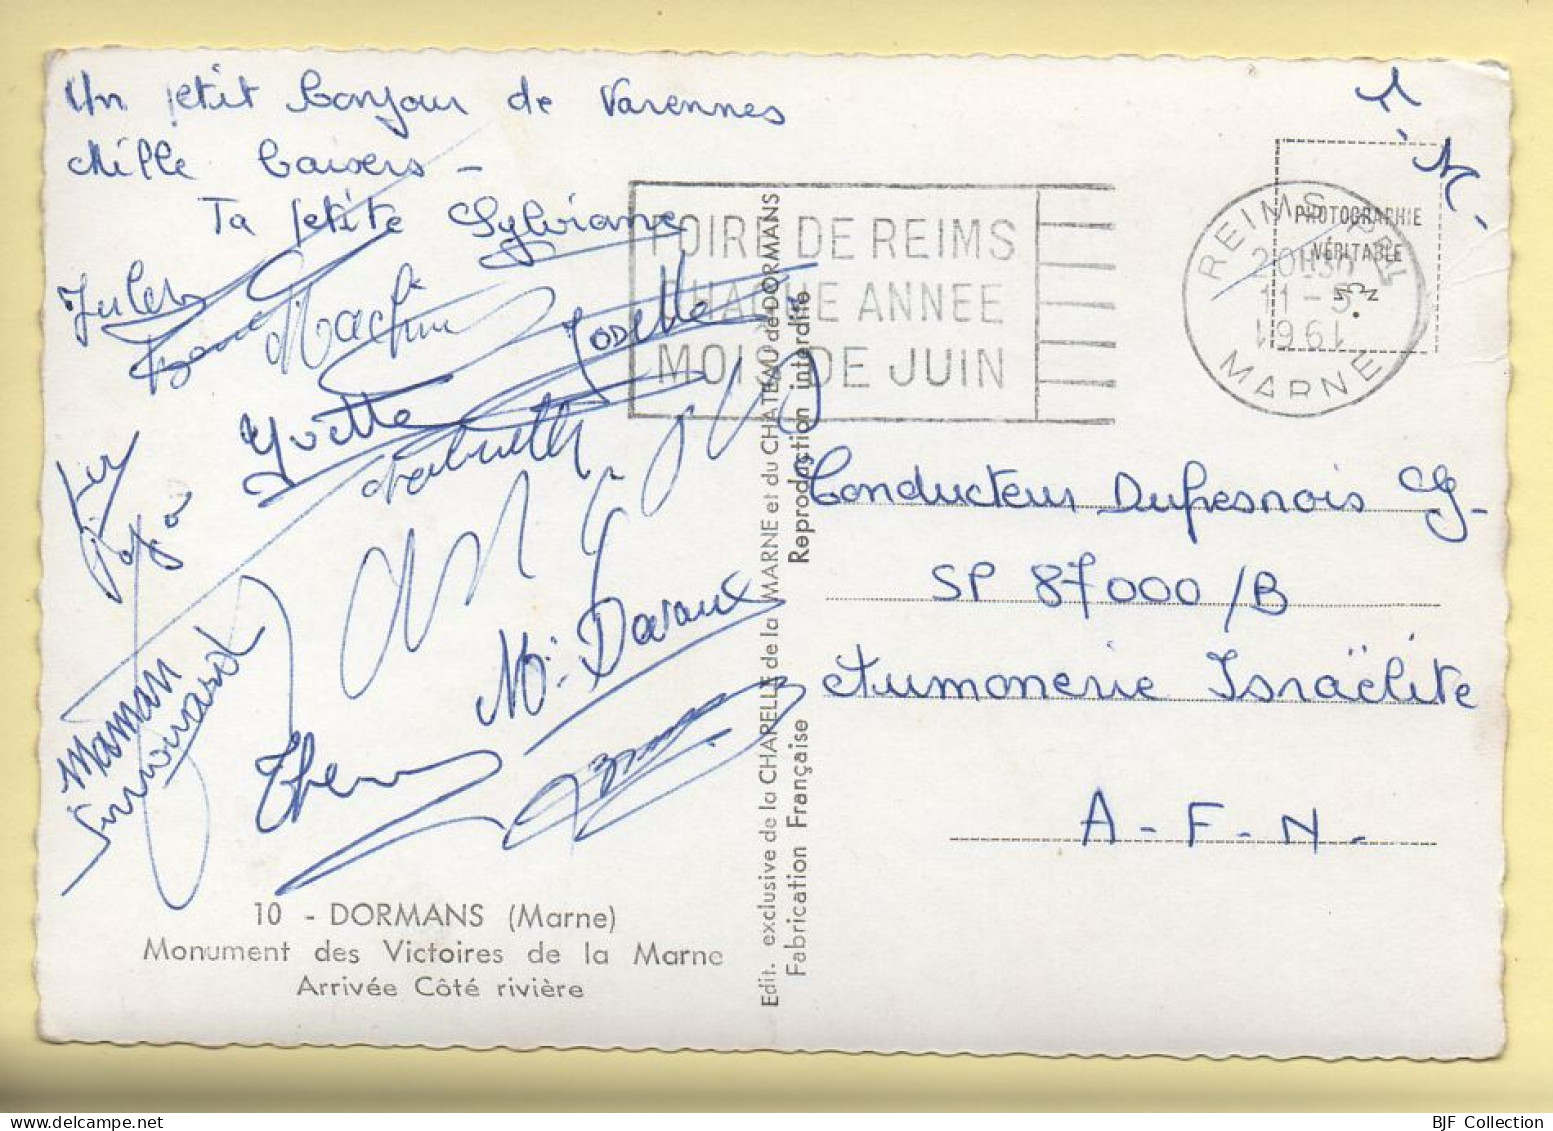 Un petit bonjour de Varennes
Mille baisers -
Ta petite Sylviane
Jules
Yvette
Josette
papa
Maman
Simonard
Mr Davaux
10 - DORMANS (Marne)
Monument des Victoires de la Marne
Arrivée Côté rivière
Edit. exclusive de la CHAPELLE de la MARNE et du CHATEAU de DORMANS
Fabrication Française
Reproduction interdite
FOIRE DE REIMS
CHAQUE ANNEE
MOIS DE JUIN
PHOTOGRAPHIE
VÉRITABLE
REIMS
20H30
11-5
1961
MARNE
Conducteur Dufresnois G-
SP 87000/B
Aumonerie Israëlite
A-F-N-
BJF Collection